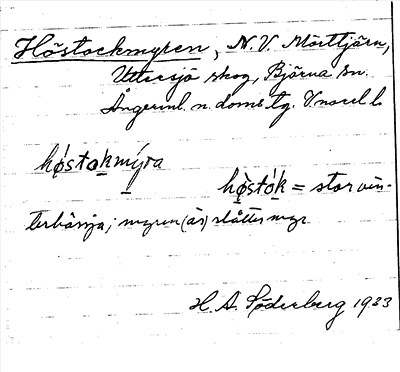 Höstackmyren, N. V. Mörttjärn,
Uttersjö skog, Björna sn.
Ångerml. n. doms tg. V. norrl. l.
hǿstokmýra
hö̀stók = stor vin-
terbärja; myren (är) slåttermyr
H. A. Söderberg 1933